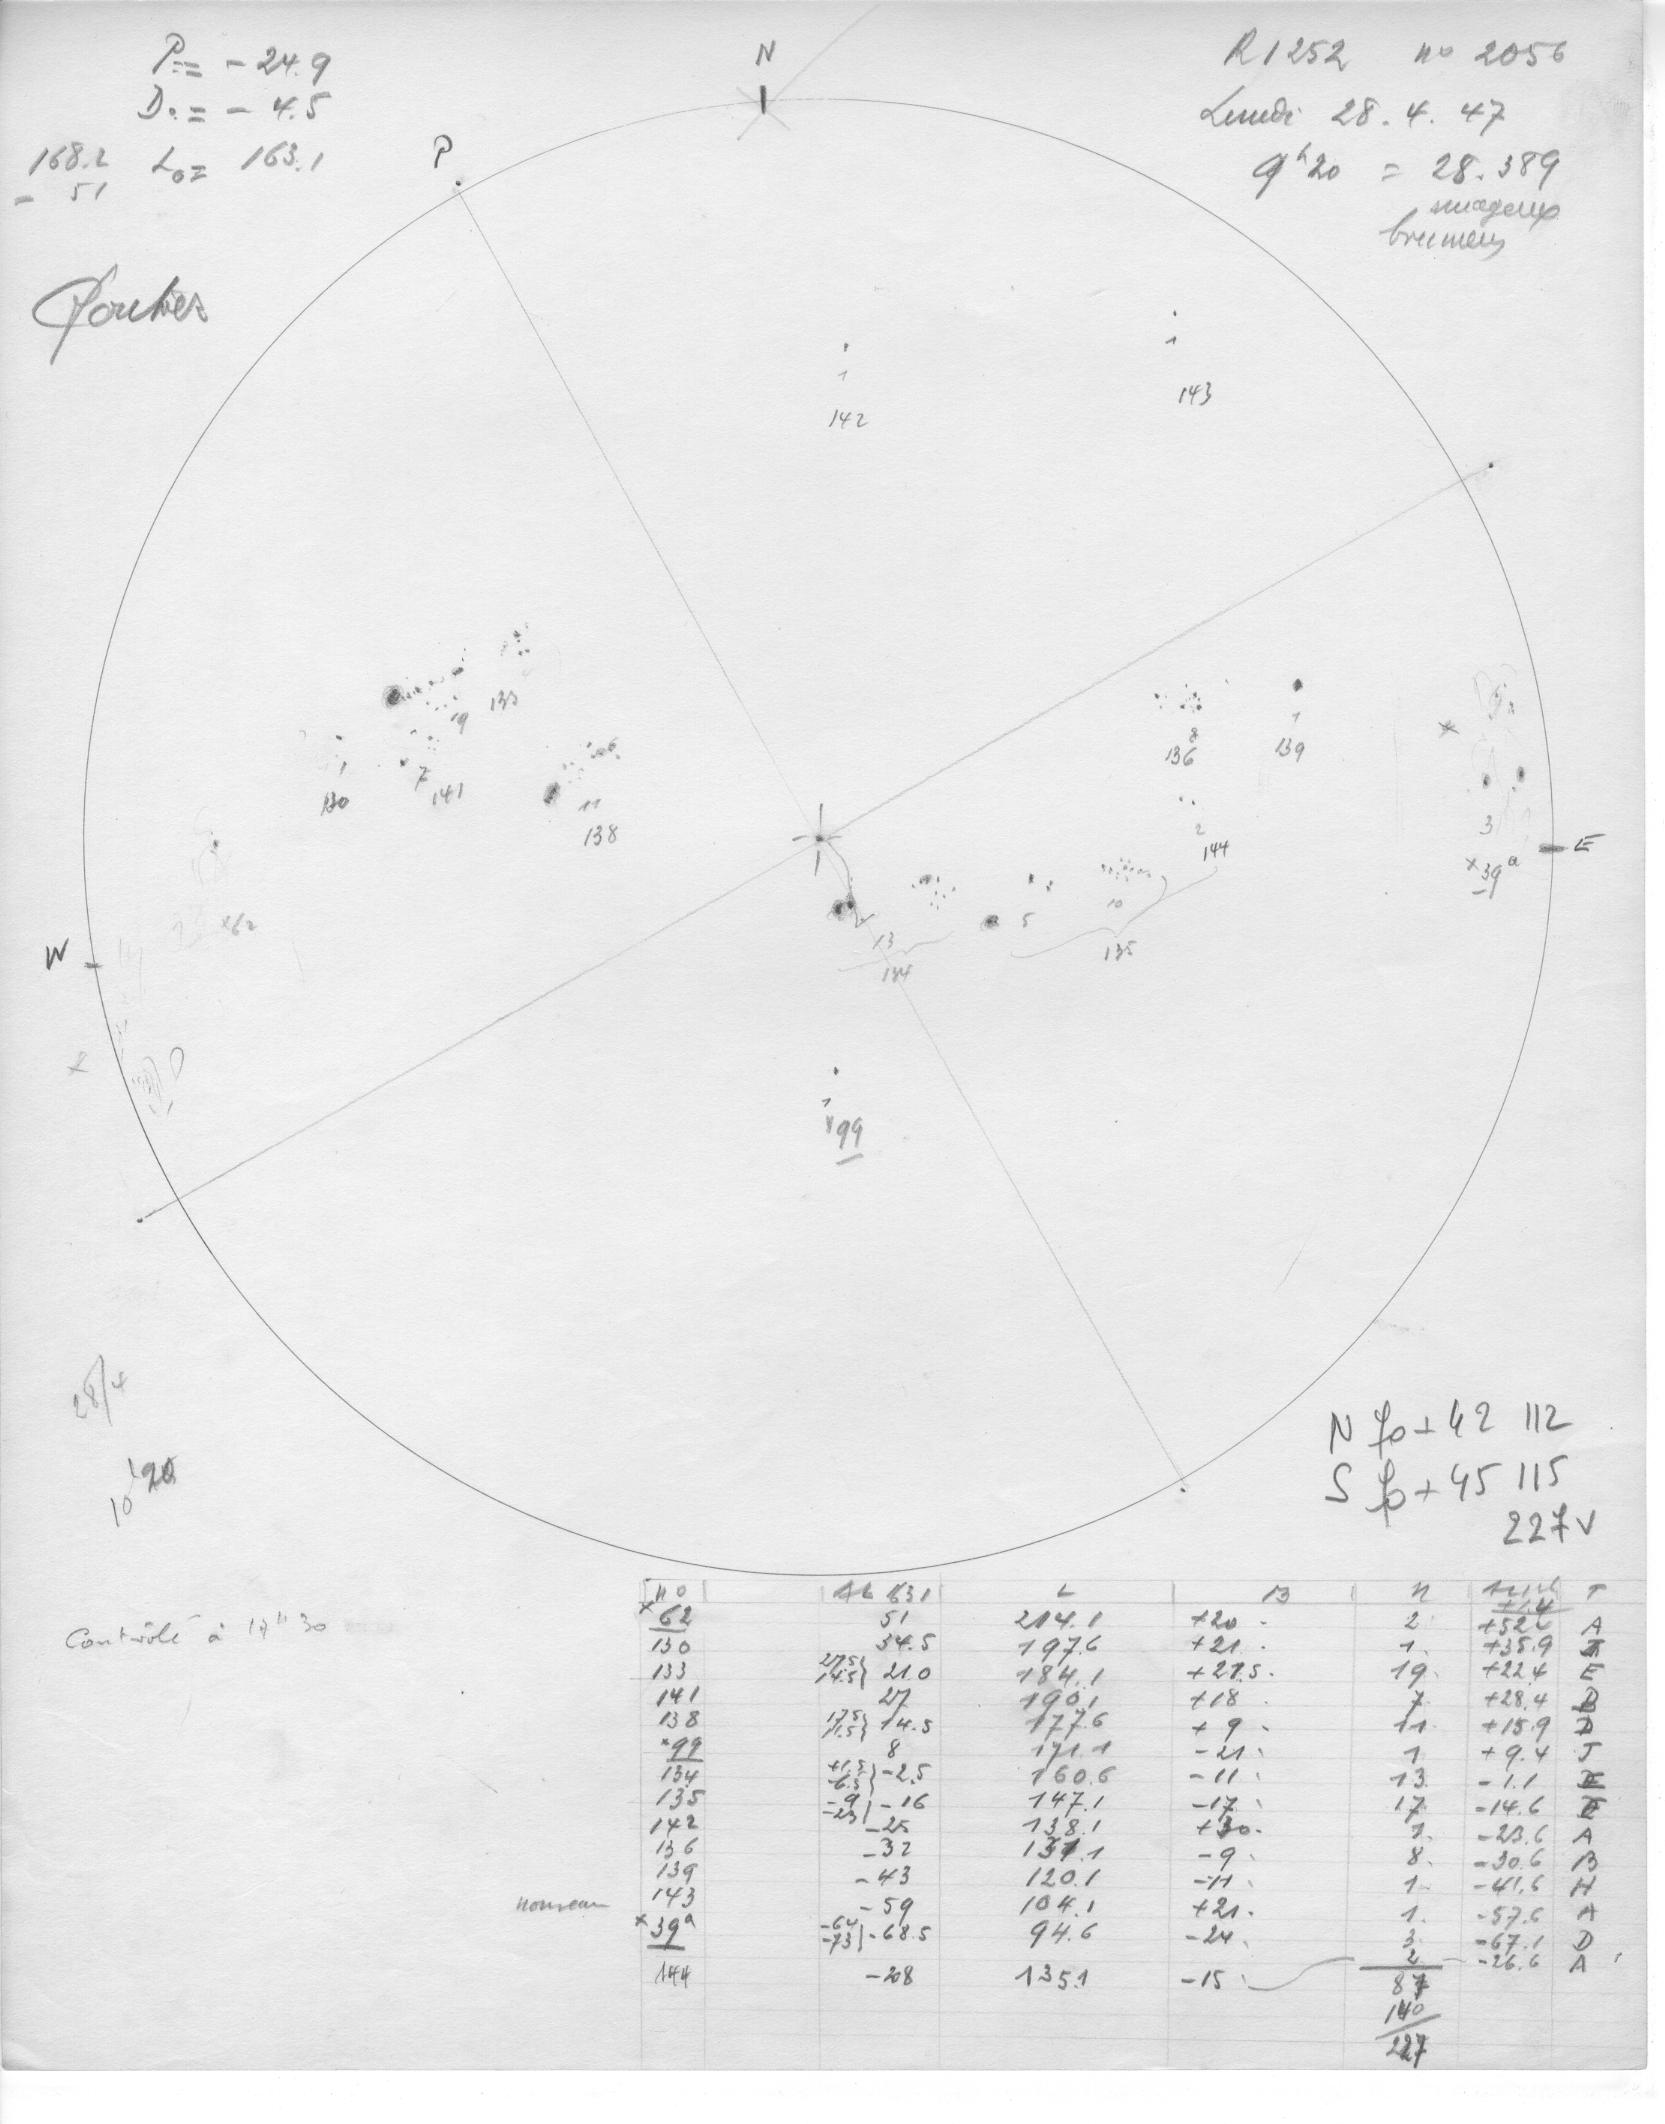 P = - 24.9
D. = - 4.5
168.2 L₀ = 163.1
- 51
N
P
R1252 no 2056
Lundi 28.4.47
9ʰ20 = 28.389
nuageux
brumeux
1
142
1
143
19
133
1
130
7
141
11
138
8
136
1
139
2
144
3
x39ᵃ
E
x62
W
13
134
5
10
135
1
x99
28/4
N 70+42 112
S 70+45 115
227 v
Contrôlé à
no L B n T
x62 51 214.1 +20 2 +52.6 A
130 34.5 197.6 +21 1 +35.9
133 27.5 14.5} 21.0 184.1 +21.5 19 +22.4 E
141 27 190.1 +18 7 +28.4
138 17.5 11.5} 14.5 177.6 +9 11 +15.9 D
x99 8 171.1 -21 1 +9.4 J
134 +1.5 -6.5} -2.5 160.6 -11 13 -1.1
135 -9 -23} -16 147.1 -17 17 -14.6
142 -25 138.1 +30 1 -23.6 A
136 -32 131.1 -9 8 -30.6 B
139 -43 120.1 -11 1 -41.6 H
nouveau 143 -59 104.1 +21 1 -57.6 A
x39ᵃ -64 -73} -68.5 94.6 -24 3 -67.1 D
144 -28 135.1 -15 2 -26.6 A
87
140
227